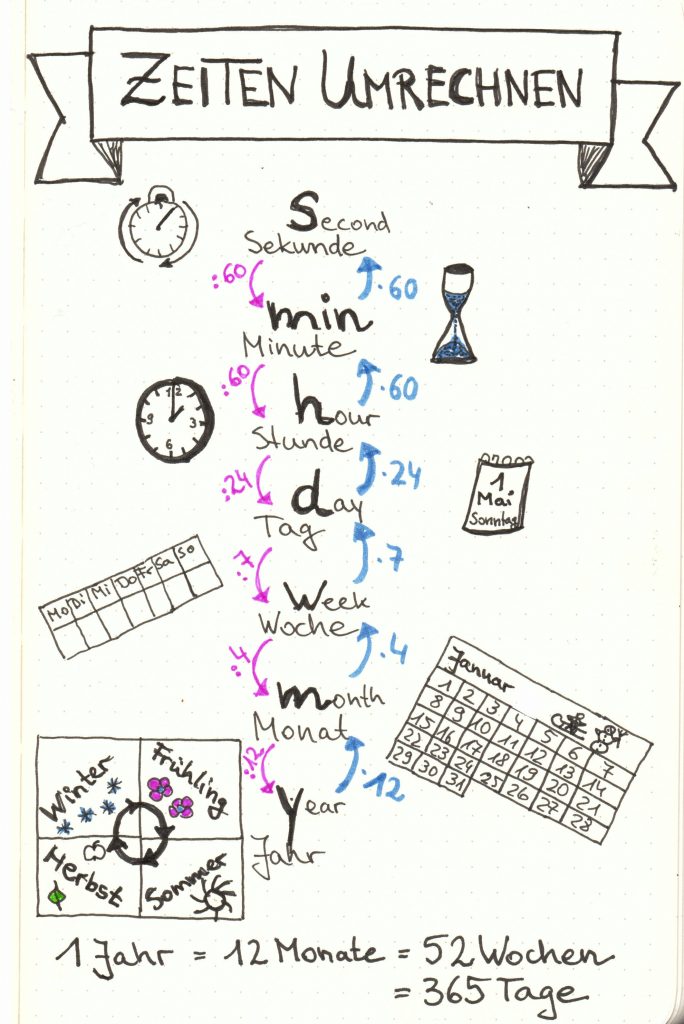 ZEITEN UMRECHNEN
Second
Sekunde
:60
·60
min
Minute
:60
·60
hour
Stunde
:24
·24
day
Tag
:7
·7
Week
Woche
:4
·4
month
Monat
:12
·12
Year
Jahr
12
3
6
9
1
Mai
Sonntag
Mo Di Mi Do Fr Sa So
Januar
1 2 3 4 5 6 7
8 9 10 11 12 13 14
15 16 17 18 19 20 21
22 23 24 25 26 27 28
29 30 31
Winter
Frühling
Herbst
Sommer
1 Jahr = 12 Monate = 52 Wochen
= 365 Tage